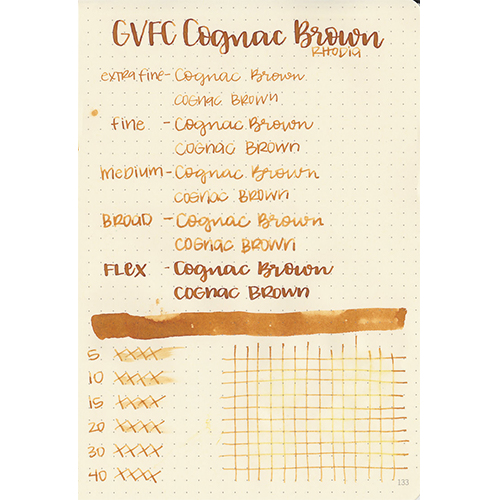 GVFC Cognac Brown
RHODIA
extra fine - Cognac Brown
COGNAC BROWN
fine - Cognac Brown
COGNAC BROWN
medium - Cognac Brown
COGNAC BROWN
BROAD - Cognac Brown
COGNAC BROWN
FLEX - Cognac Brown
COGNAC BROWN
5 XXXX
10 XXXX
15 XXXX
20 XXXX
30 XXXX
40 XXXX
133